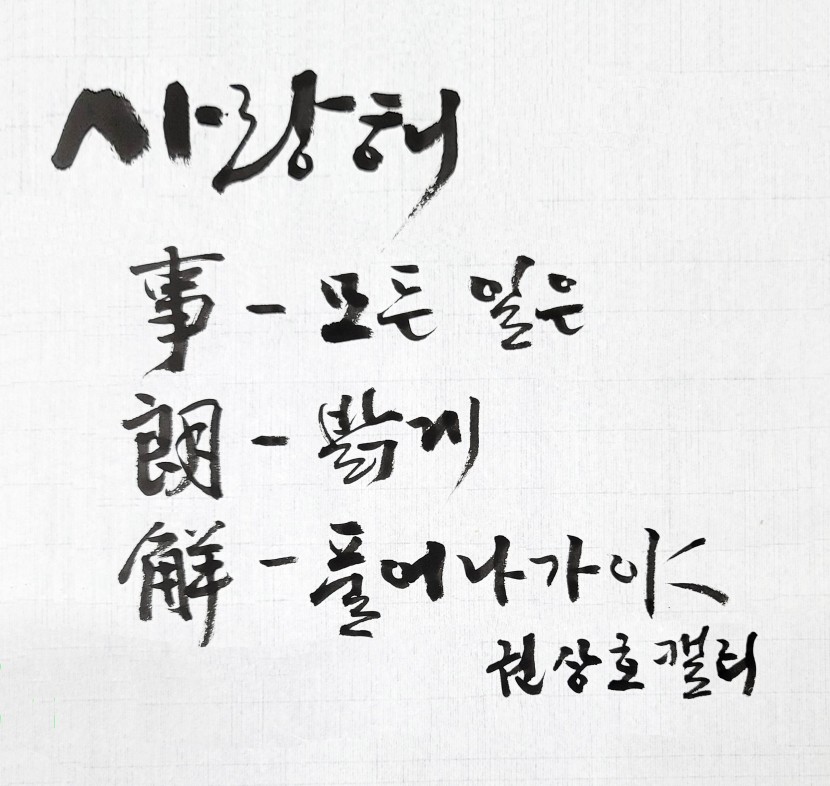 사랑해
事 - 모든 일은
朗 - 밝게
解 - 풀어나가야
권상호 갤리